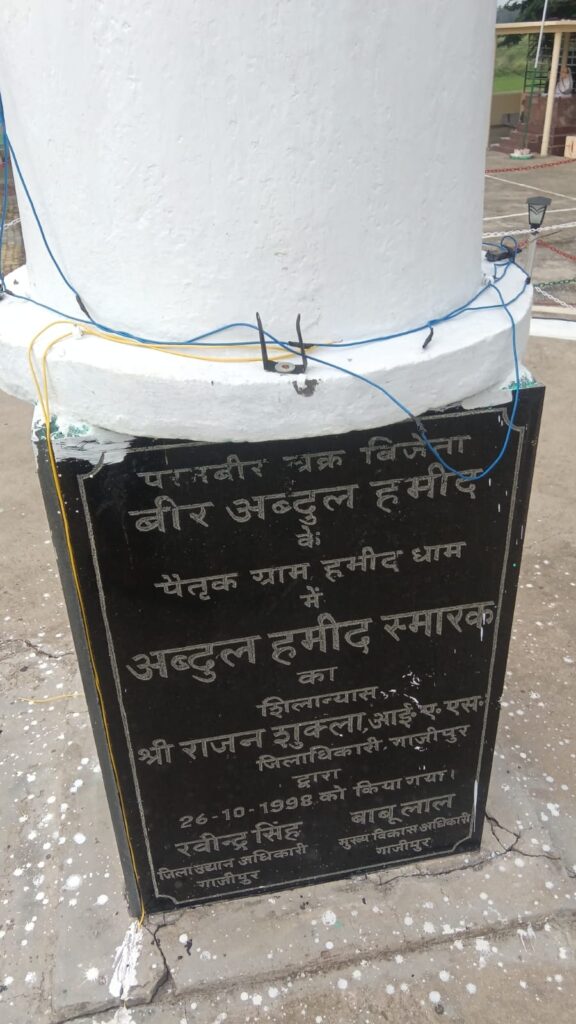 परमबीर चक्र बिजेता
बीर अब्दुल हमीद
के
पैतृक ग्राम हमीद धाम
में
अब्दुल हमीद स्मारक
का
शिलान्यास
श्री राजन शुक्ला,आई.ए.एस.
जिलाधिकारी, गाज़ीपुर
द्वारा
26-10-1998 को किया गया।
रवीन्द्र सिंह
जिला उद्यान अधिकारी
गाज़ीपुर
बाबू लाल
मुख्य विकास अधिकारी
गाज़ीपुर